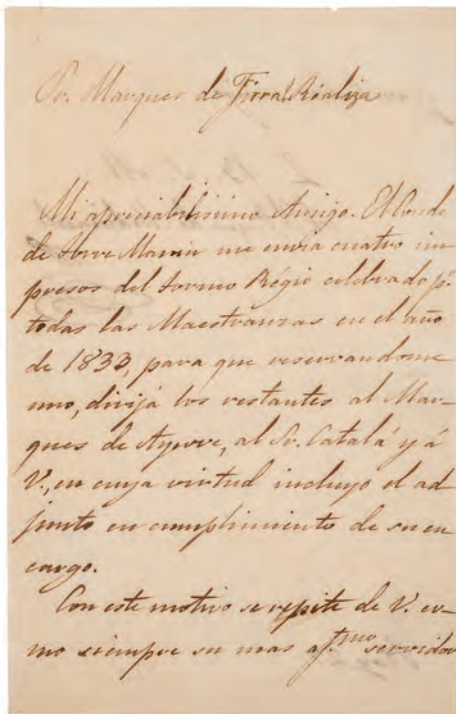 Sr. Marques de Tirral Rializa
Mi apreciabilisimo Amigo. El Conde
de Torre Marin me envia cuatro im
presos del torneo Régio celebrado pr.
todas las Maestranzas en el año
de 1833, para que reservandome
uno, dirijá los restantes al Mar-
ques de Ayerve, al Sr. Catalá y á
V., en cuya virtud incluyo el ad
junto en cumplimiento de su en
cargo.
Con este motivo se repite de V. co-
mo siempre su mas af.tmo servidor